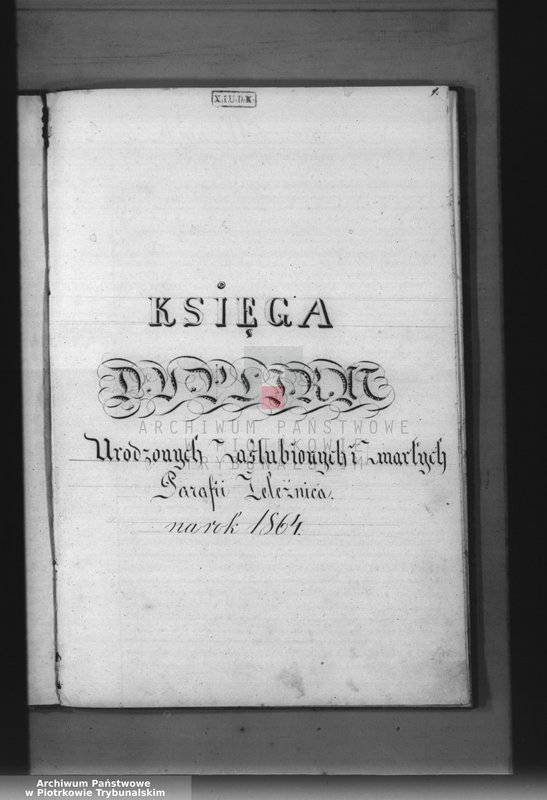 X.I.U.D.K.
1.
KSIĘGA
DUPLIKAT
ARCHIWUM PAŃSTWOWE
W PIOTRKOWIE
TRYBUNALSKIM
Urodzonych Zaślubionych i Zmarłych
Parafii Żeleźnica.
na rok 1864.
Archiwum Państwowe
w Piotrkowie Trybunalskim